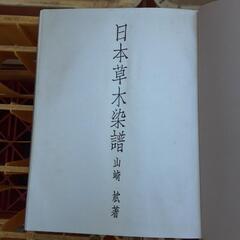 日本草木染譜
山崎 斌著